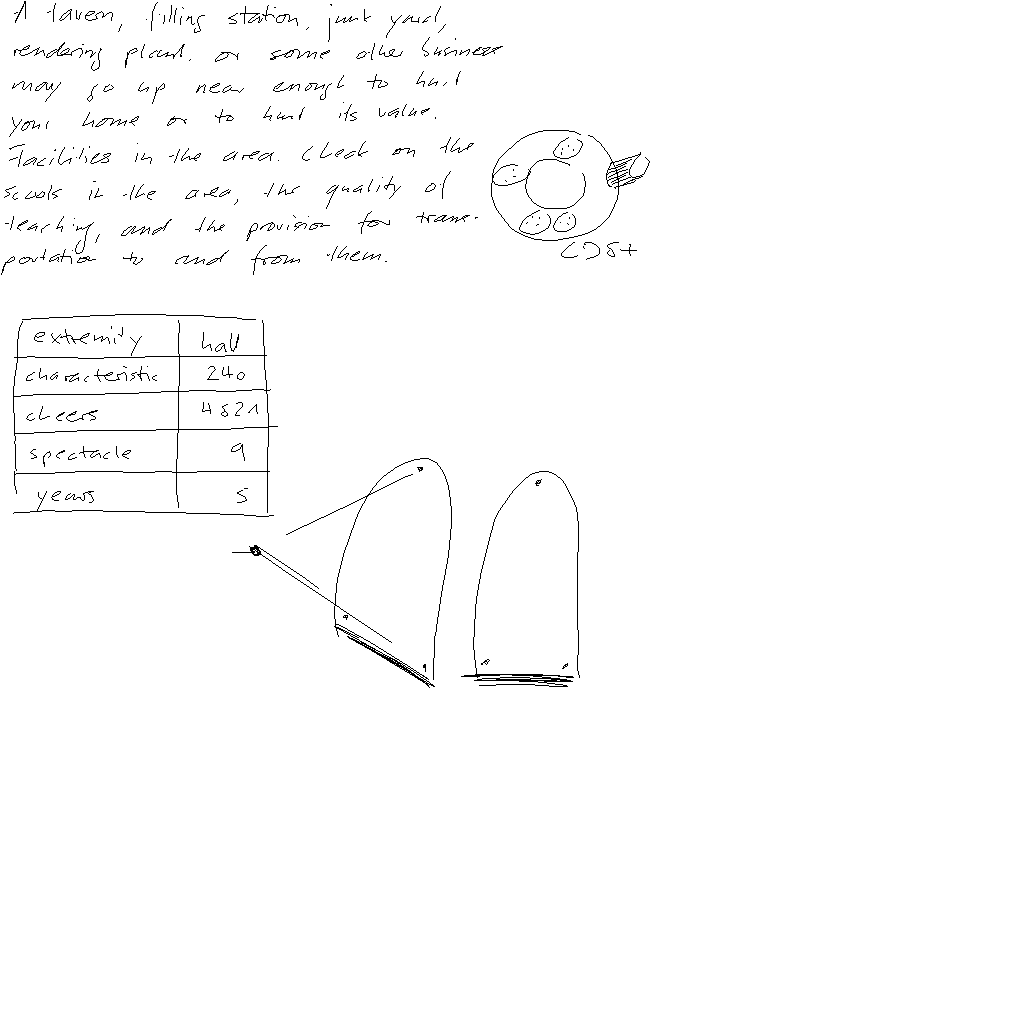 A tavern, filling station, junk yard,
rendering plant. or some other business
may go up near enough to hurt
your home or to hurt its value.
Facilities in the area. Check on the
scools in the area, the quality of
teaching, and the provision for trans-
portation to and from them.
CD8+
extremity hall
characteristic 240
cheers 4821
spectacle 9
years 5